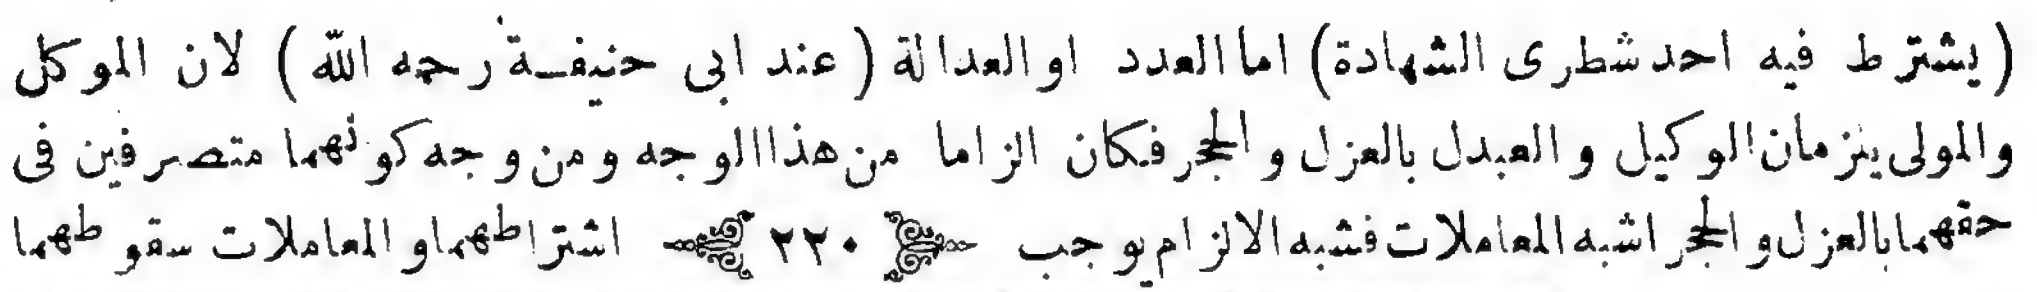 (يشترط فيه احد شطرى الشهادة) اما العدد او العدالة (عند ابى حنيفة رحمه الله) لان الموكل
والمولى ينزمان الوكيل والعبدل بالعزل والحجر فكان الزاما من هذا الوجه ومن وجه كونهما متصرفين فى
حقهما بالعزل والحجر اشبه المعاملات فشبه الالزام يوجب ٢٢٠ اشتراطهما والمعاملات سقوطهما